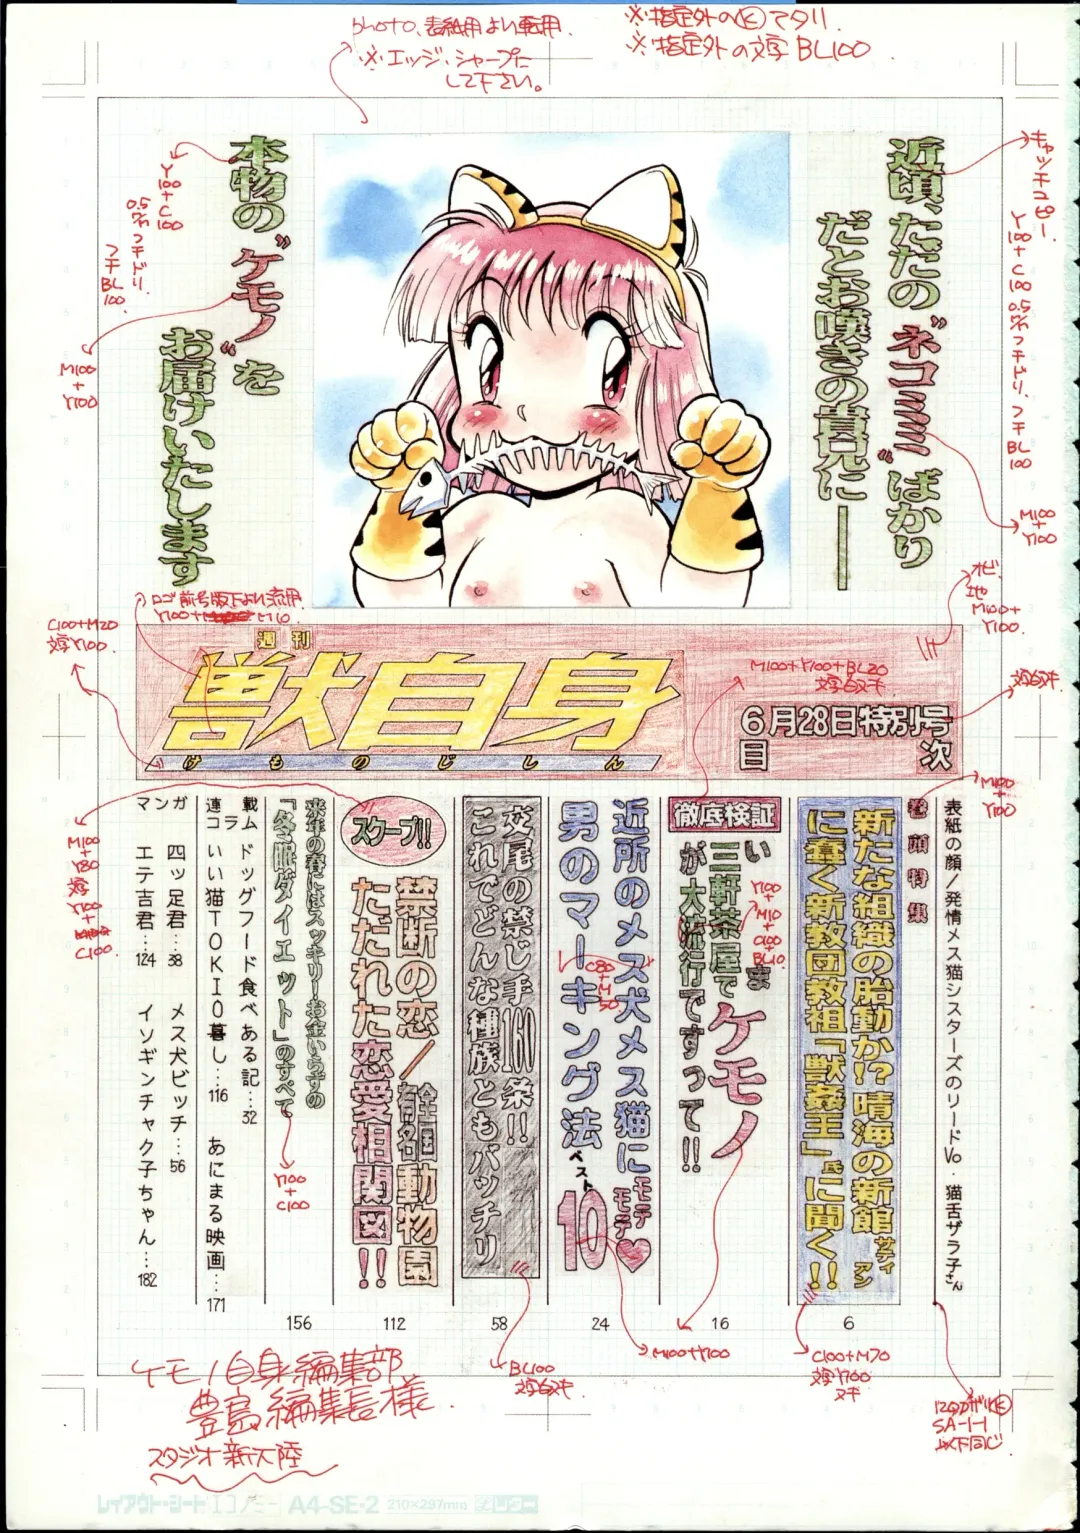 photo、表紙用より転用.
※エッジ、シャープに
して下さい。
※指定外の㋣アタリ.
※指定外の文字 BL100
キャッチコピー.
Y100+C100 0.5㍉フチドリ、フチBL100
近頃、ただの〝ネコミミ〟ばかり
だとお嘆きの貴兄に――
M100+Y100
本物の〝ケモノ〟を
お届けいたします
Y100+C100
0.5㍉フチドリ.
フチBL100
M100+Y100
ロゴ前号版下より流用
C100+M20
文字Y100
オビ.地
M100+Y100
週刊
獣自身
けものじしん
M100+Y100+BL20
文字白ヌキ
文字白ヌキ
6月28日特別号
目次
M100+Y100
表紙の顔/発情メス猫シスターズのリードVo.猫舌ザラ子さん
巻頭特集
新たな組織の胎動か!?晴海の新館サティアン
に蠢く新教団教祖「獣姦王」氏に聞く!!
6
徹底検証
いま
三軒茶屋でケモノ
が大流行ですって!!
16
Y100+M10+C100+BL10
近所のメス犬メス猫にモテモテ♥
男のマーキング法ベスト10
24
C80+M50
交尾の禁じ手160条!!
これでどんな種族ともバッチリ
58
スクープ!!
禁断の恋/全国有名動物園
ただれた恋愛相関図!!
112
来年の春にはスッキリ!お金いらずの
「冬眠ダイエット」のすべて
156
連載
コラム
ドッグフード食べある記…52
いい猫TOKIO暮し…116
あにまる映画…171
マンガ
四ッ足君…38
メス犬ビッチ…56
エテ吉君…124
イソギンチャク子ちゃん…182
M100+Y80
文字Y100+C100
Y100+C100
BL100
文字白ヌキ
M100+Y100
C100+M70
文字Y100
ヌキ
SA-1-1
以下同じ
ケモノ自身編集部
豊島編集長様.
スタジオ新大陸
レイアウト・シート エコノミー A4-SE-2 210×297mm レター